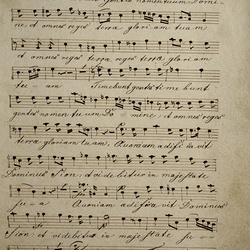 gentes nomen tuum Domi-
ne et omnes reges terra gloriam tuam
et omnes reges terra reges terra gloriam
tu-am Timebunt gentes time bunt
gentes nomen tuum Do mine et omnes reges
terra gloriam tuam, Quoniam adifi ca vit
Dominus Sion, et videbitur in majestate
su-a Quoniam adifica vit Dominus
Sion, et videbitur in majestate su